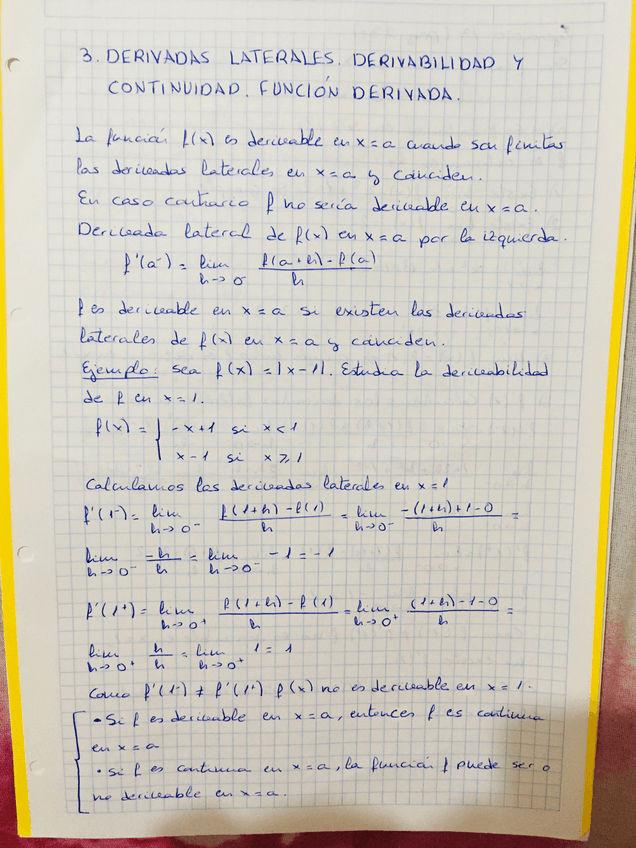 3. DERIVADAS LATERALES. DERIVABILIDAD Y
CONTINUIDAD. FUNCIÓN DERIVADA.
La función f(x) es derivable en x=a cuando son finitas
las derivadas laterales en x=a y coinciden.
En caso contrario f no sería derivable en x=a.
Derivada lateral de f(x) en x=a por la izquierda.
f'(a⁻) = lim h->0⁻ (f(a+h)-f(a))/h
f es derivable en x=a si existen las derivadas
laterales de f(x) en x=a y coinciden.
Ejemplo: sea f(x)=|x-1|. Estudia la derivabilidad
de f en x=1.
f(x) = { -x+1 si x<1
x-1 si x⩾1
Calculamos las derivadas laterales en x=1
f'(1⁻)= lim h->0⁻ (f(1+h)-f(1))/h = lim h->0⁻ (-(1+h)+1-0)/h =
lim h->0⁻ -h/h = lim h->0⁻ -1=-1
f'(1⁺)= lim h->0⁺ (f(1+h)-f(1))/h = lim h->0⁺ ((1+h)-1-0)/h =
lim h->0⁺ h/h = lim h->0⁺ 1 = 1
Como f'(1⁻) ≠ f'(1⁺) f(x) no es derivable en x=1.
• Si f es derivable en x=a, entonces f es continua
en x=a
• Si f es continua en x=a, la función f puede ser o
no derivable en x=a.